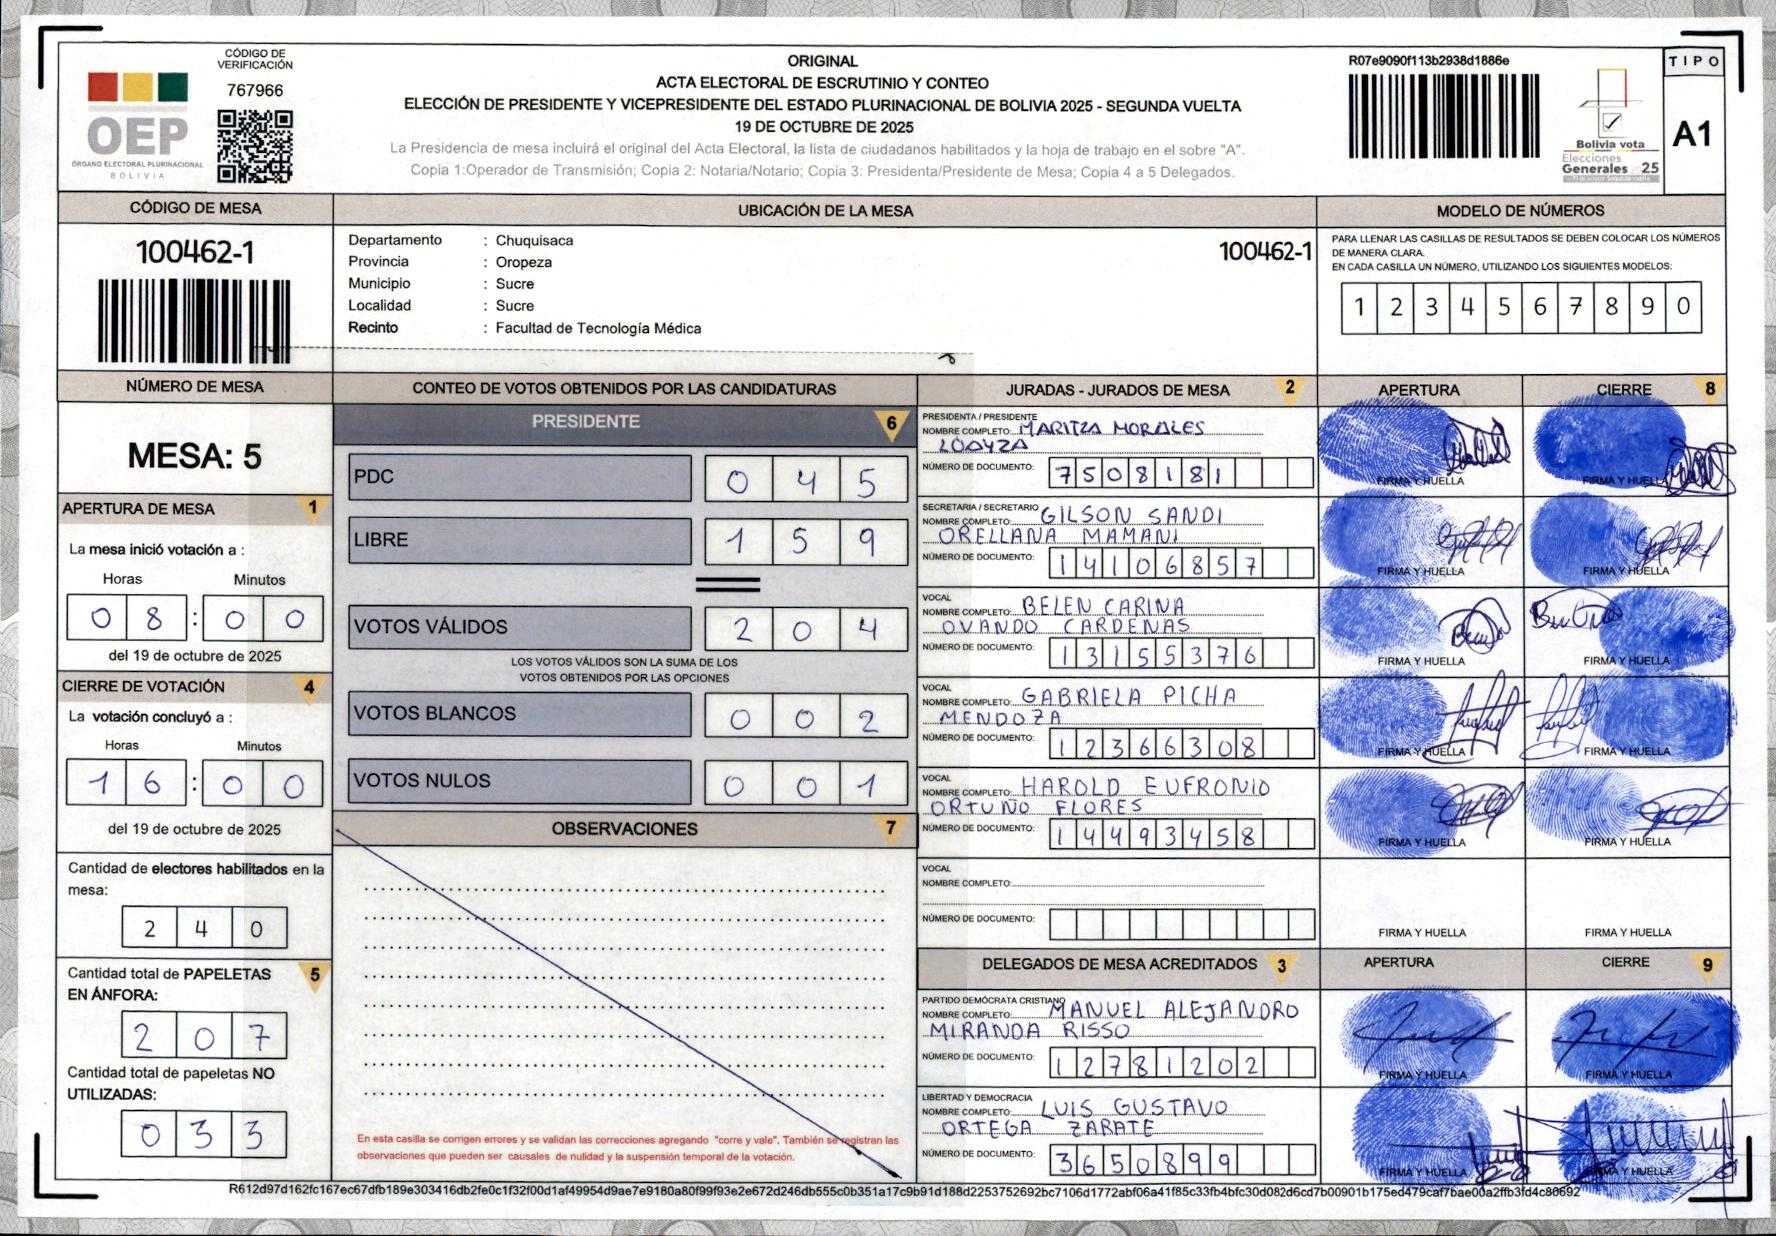 CÓDIGO DE VERIFICACIÓN
767966
OEP
ÓRGANO ELECTORAL PLURINACIONAL
BOLIVIA
ORIGINAL
ACTA ELECTORAL DE ESCRUTINIO Y CONTEO
ELECCIÓN DE PRESIDENTE Y VICEPRESIDENTE DEL ESTADO PLURINACIONAL DE BOLIVIA 2025 - SEGUNDA VUELTA
19 DE OCTUBRE DE 2025
La Presidencia de mesa incluirá el original del Acta Electoral, la lista de ciudadanos habilitados y la hoja de trabajo en el sobre "A".
Copia 1:Operador de Transmisión; Copia 2: Notaria/Notario; Copia 3: Presidenta/Presidente de Mesa; Copia 4 a 5 Delegados.
R07e9090f113b2938d1886e
Bolivia vota
Elecciones
Generales 25
TIPO
A1
CÓDIGO DE MESA
100462-1
UBICACIÓN DE LA MESA
Departamento : Chuquisaca
Provincia : Oropeza
Municipio : Sucre
Localidad : Sucre
Recinto : Facultad de Tecnología Médica
100462-1
MODELO DE NÚMEROS
PARA LLENAR LAS CASILLAS DE RESULTADOS SE DEBEN COLOCAR LOS NÚMEROS
DE MANERA CLARA.
EN CADA CASILLA UN NÚMERO, UTILIZANDO LOS SIGUIENTES MODELOS:
1 2 3 4 5 6 7 8 9 0
NÚMERO DE MESA
MESA: 5
APERTURA DE MESA 1
La mesa inició votación a :
Horas Minutos
0 8 : 0 0
del 19 de octubre de 2025
CIERRE DE VOTACIÓN 4
La votación concluyó a :
Horas Minutos
1 6 : 0 0
del 19 de octubre de 2025
Cantidad de electores habilitados en la
mesa:
2 4 0
Cantidad total de PAPELETAS 5
EN ÁNFORA:
2 0 7
Cantidad total de papeletas NO
UTILIZADAS:
0 3 3
CONTEO DE VOTOS OBTENIDOS POR LAS CANDIDATURAS
PRESIDENTE 6
PDC 0 4 5
LIBRE 1 5 9
VOTOS VÁLIDOS 2 0 4
LOS VOTOS VÁLIDOS SON LA SUMA DE LOS
VOTOS OBTENIDOS POR LAS OPCIONES
VOTOS BLANCOS 0 0 2
VOTOS NULOS 0 0 1
OBSERVACIONES 7
En esta casilla se corrigen errores y se validan las correcciones agregando "corre y vale". También se registran las
observaciones que pueden ser causales de nulidad y la suspensión temporal de la votación.
JURADAS - JURADOS DE MESA 2
APERTURA
CIERRE 8
PRESIDENTA / PRESIDENTE
NOMBRE COMPLETO: MARITZA MORALES
LOAYZA
NÚMERO DE DOCUMENTO: 7508181
FIRMA Y HUELLA FIRMA Y HUELLA
SECRETARIA / SECRETARIO
NOMBRE COMPLETO: GILSON SANDI
ORELLANA MAMANI
NÚMERO DE DOCUMENTO: 14106857
FIRMA Y HUELLA FIRMA Y HUELLA
VOCAL
NOMBRE COMPLETO: BELEN CARINA
OVANDO CARDENAS
NÚMERO DE DOCUMENTO: 13155376
FIRMA Y HUELLA FIRMA Y HUELLA
VOCAL
NOMBRE COMPLETO: GABRIELA PICHA
MENDOZA
NÚMERO DE DOCUMENTO: 12366308
FIRMA Y HUELLA FIRMA Y HUELLA
VOCAL
NOMBRE COMPLETO: HAROLD EUFRONIO
ORTUÑO FLORES
NÚMERO DE DOCUMENTO: 14493458
FIRMA Y HUELLA FIRMA Y HUELLA
VOCAL
NOMBRE COMPLETO:
NÚMERO DE DOCUMENTO:
FIRMA Y HUELLA FIRMA Y HUELLA
DELEGADOS DE MESA ACREDITADOS 3
APERTURA
CIERRE 9
PARTIDO DEMÓCRATA CRISTIANO
NOMBRE COMPLETO: MANUEL ALEJANDRO
MIRANDA RISSO
NÚMERO DE DOCUMENTO: 12781202
FIRMA Y HUELLA FIRMA Y HUELLA
LIBERTAD Y DEMOCRACIA
NOMBRE COMPLETO: LUIS GUSTAVO
ORTEGA ZARATE
NÚMERO DE DOCUMENTO: 3650899
FIRMA Y HUELLA FIRMA Y HUELLA